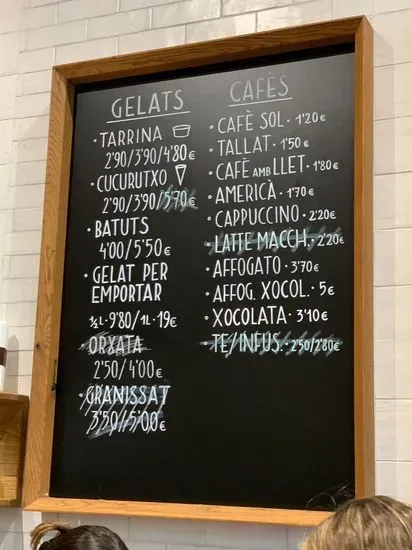 GELATS
• TARRINA
2'90/3'90/4'80
• CUCURUTXO
2'90/3'90/5'70€
• BATUTS
4'00/5'50€
• GELAT PER
EMPORTAR
½L·9'80/1L·19€
• ORXATA
2'50/4'00€
• GRANISSAT
3'50/5'00€
CAFÈS
• CAFÈ SOL · 1'20€
• TALLAT · 1'50€
• CAFÈ AMB LLET · 1'80€
• AMERICÀ · 1'70€
• CAPPUCCINO · 2'20€
• LATTE MACCH. · 2'20€
• AFFOGATO · 3'70€
• AFFOG. XOCOL. · 5€
• XOCOLATA · 3'10€
• TE/INFUS. · 2'50/2'80€